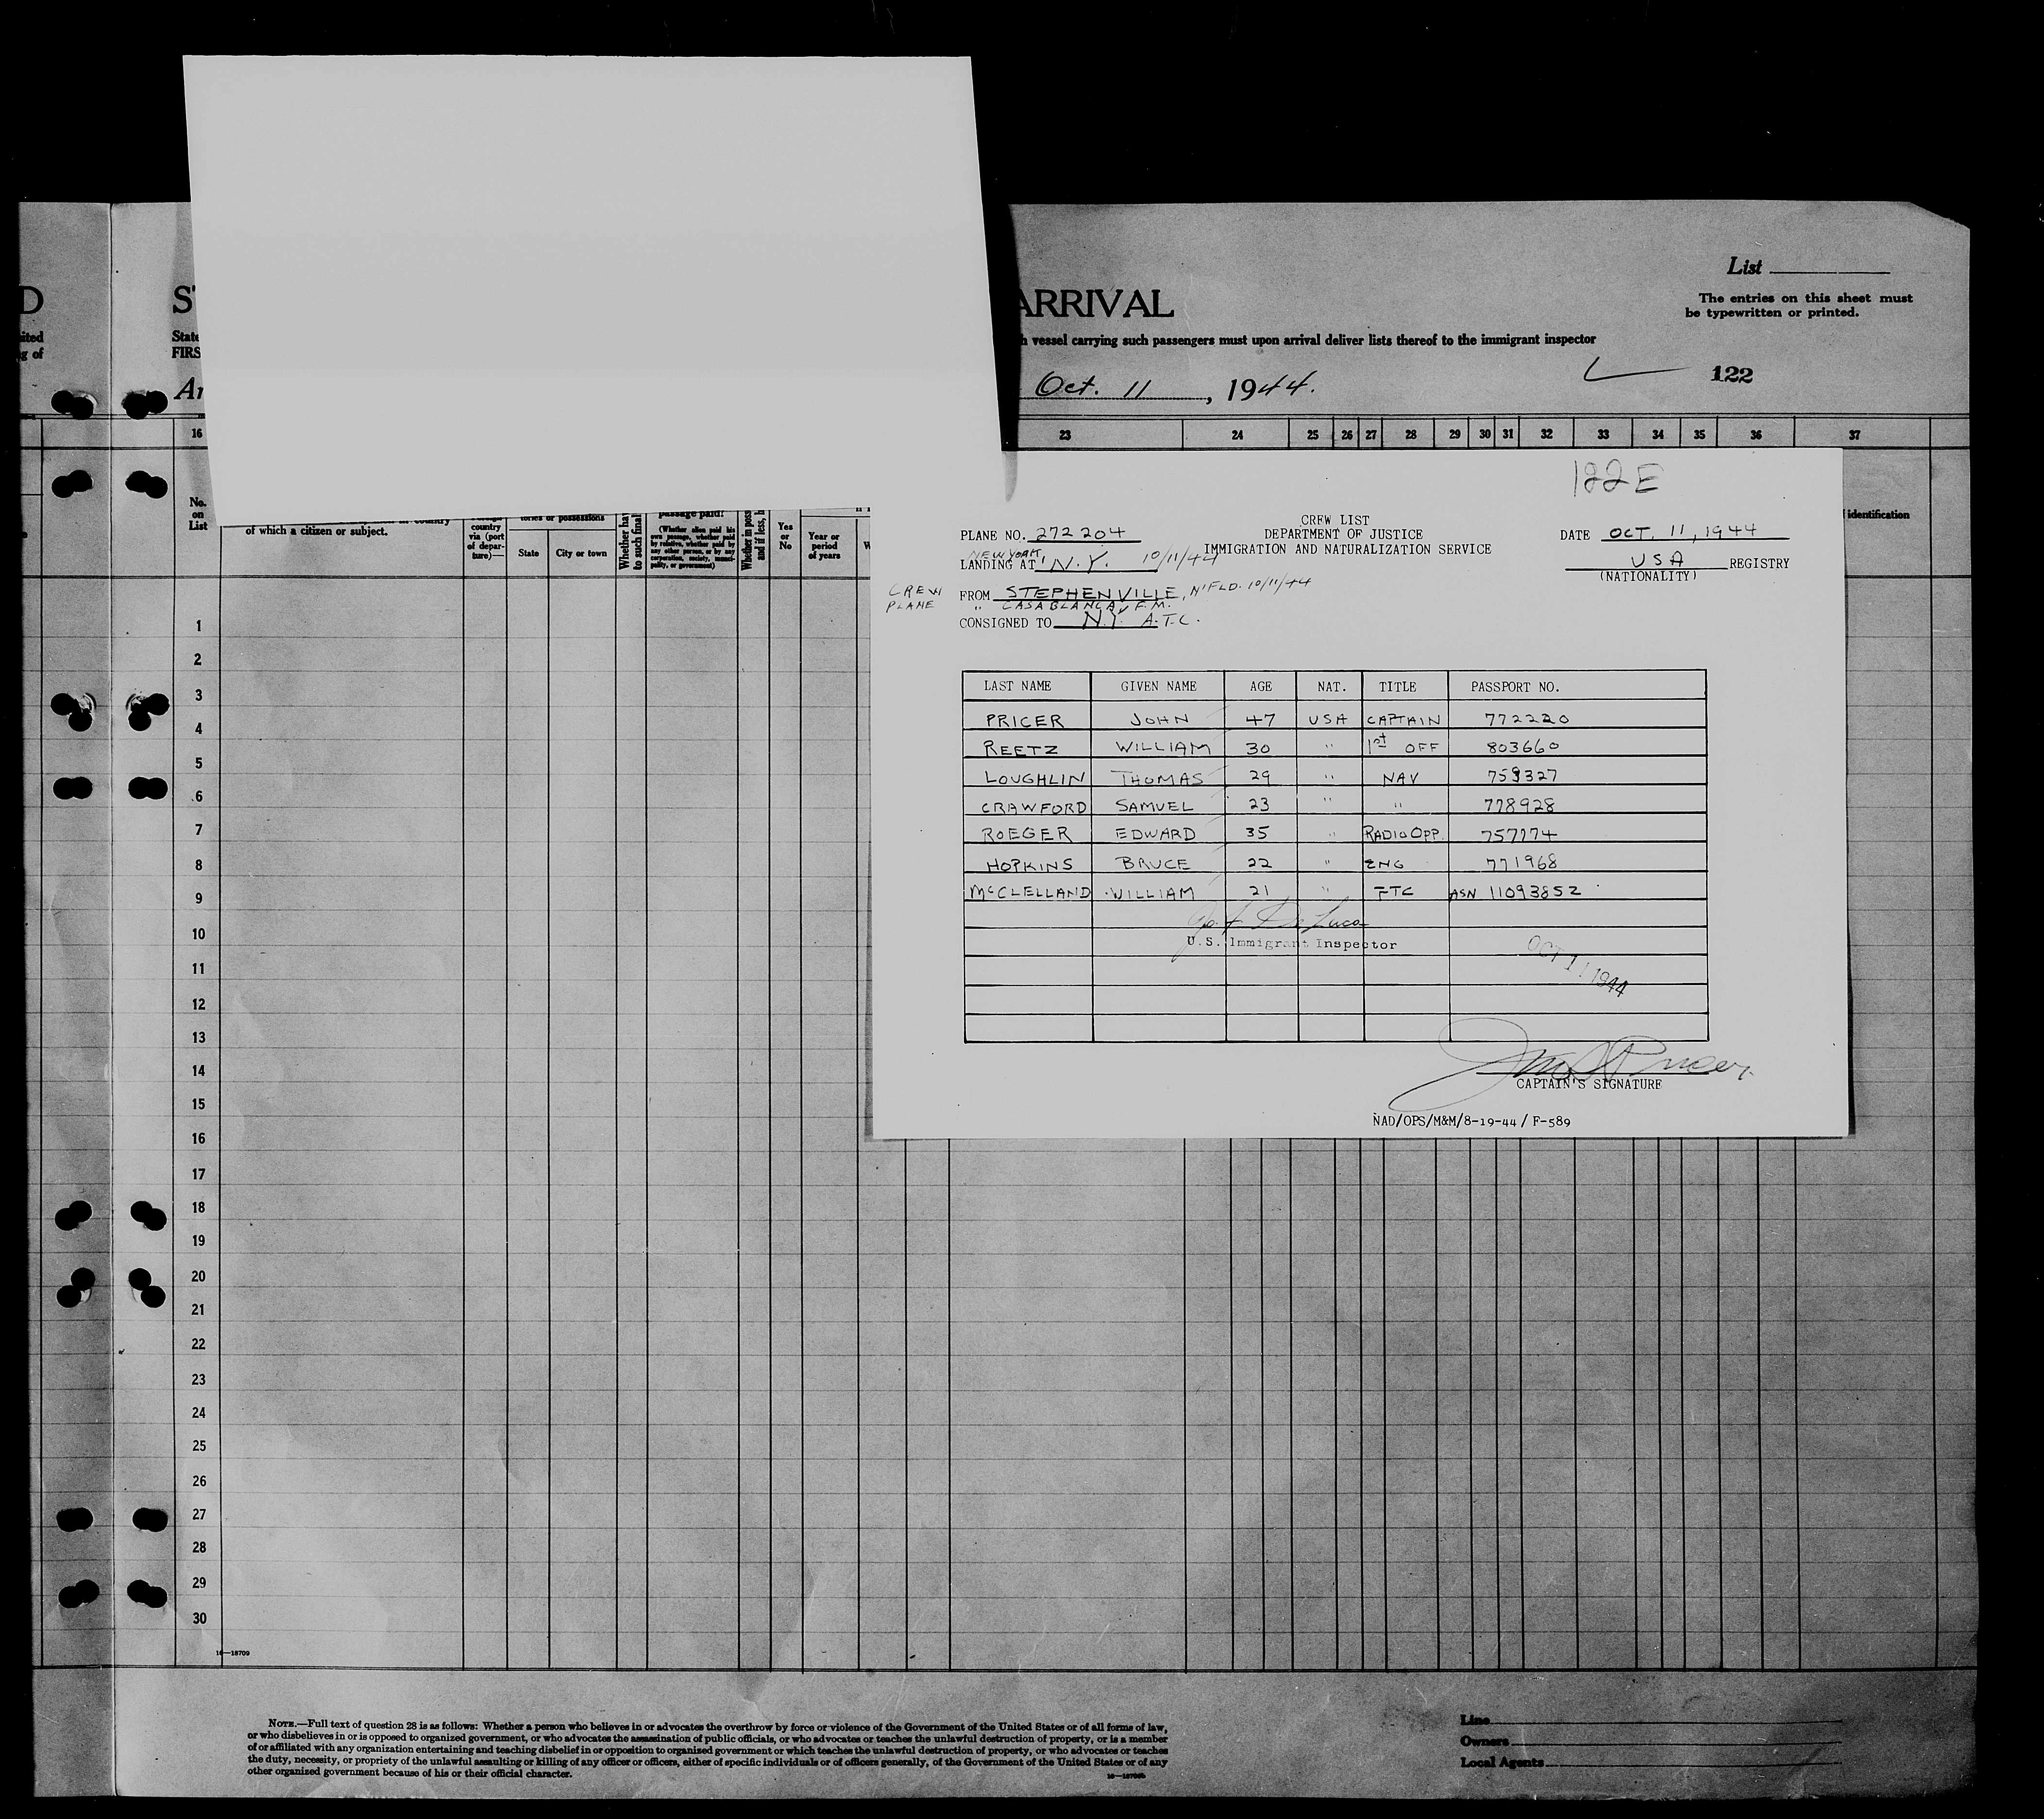 D
ST
ARRIVAL
List
The entries on this sheet must
be typewritten or printed.
ited
State
h vessel carrying such passengers must upon arrival deliver lists thereof to the immigrant inspector
g of
FIRS
Ar
Oct. 11, 1944.
122
16 23 24 25 26 27 28 29 30 31 32 33 34 35 36 37
No.
on
List
of which a citizen or subject.
country
via (port
of depar-
ture)—
tories or possessions
State
City or town
Whether hav
to such final
passage paid?
(Whether alien paid his
own passage, whether paid
by relative, whether paid by
any other person, or by any
corporation, society, munici-
pality, or government)
Whether in poss
and if less, h
Yes
or
No
Year or
period
of years
W
identification
122E
CREW LIST
PLANE NO. 272204 DEPARTMENT OF JUSTICE DATE OCT. 11, 1944
NEW YORK,
LANDING AT N.Y. 10/11/44 IMMIGRATION AND NATURALIZATION SERVICE USA REGISTRY
(NATIONALITY)
CREW
PLANE
FROM STEPHENVILLE, N'FLD. 10/11/44
" CASABLANCA, F.M.
CONSIGNED TO N.Y. A.T.C.
LAST NAME GIVEN NAME AGE NAT. TITLE PASSPORT NO.
PRICER JOHN 47 USA CAPTAIN 772220
REETZ WILLIAM 30 " 1st OFF 803660
LOUGHLIN THOMAS 29 " NAV 759327
CRAWFORD SAMUEL 23 " " 778928
ROEGER EDWARD 35 " RADIO OPP. 757174
HOPKINS BRUCE 22 " ENG 771968
McCLELLAND WILLIAM 21 " FTC ASN 11093852
De Luca
U.S. Immigrant Inspector
OCT 11 1944
CAPTAIN'S SIGNATURE
NAD/OPS/M&M/8-19-44/ F-589
1
2
3
4
5
6
7
8
9
10
11
12
13
14
15
16
17
18
19
20
21
22
23
24
25
26
27
28
29
30
16—18709
NOTE.—Full text of question 28 is as follows: Whether a person who believes in or advocates the overthrow by force or violence of the Government of the United States or of all forms of law,
or who disbelieves in or is opposed to organized government, or who advocates the assassination of public officials, or who advocates or teaches the unlawful destruction of property, or is a member
of or affiliated with any organization entertaining and teaching disbelief in or opposition to organized government or which teaches the unlawful destruction of property, or who advocates or teaches
the duty, necessity, or propriety of the unlawful assaulting or killing of any officer or officers, either of specific individuals or of officers generally, of the Government of the United States or of any
other organized government because of his or their official character.
Line
Owners
Local Agents